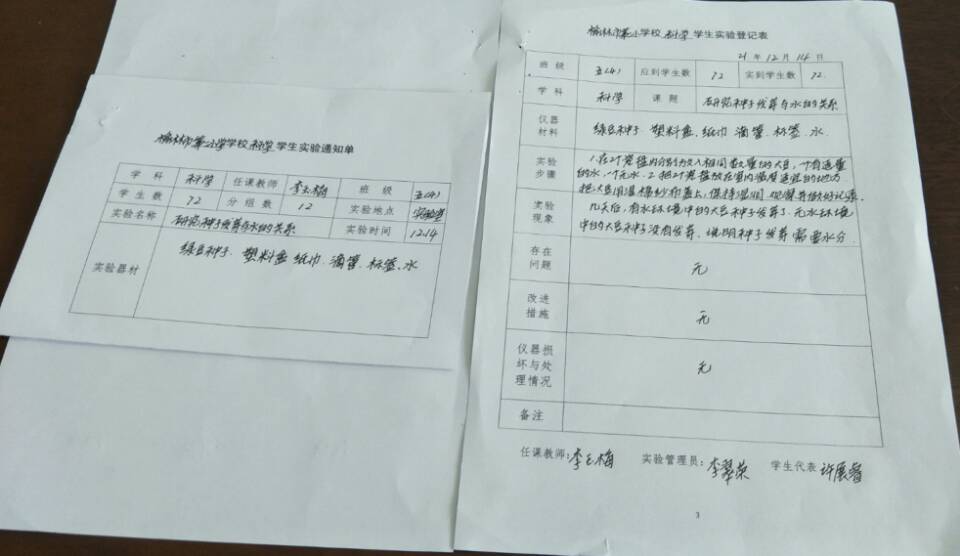 学校科学学生实验通知单
学科 科学 任课教师 李玉梅 班级 五(4)
学生数 72 分组数 12 实验地点 实验室
实验名称 研究种子发芽与水的关系 实验时间 12.14
实验器材 绿豆种子、塑料盒 纸巾、滴管、标签、水
学校科学学生实验登记表
21年12月14日
班级 五(4) 应到学生数 72 实到学生数 72
学科 科学 课题 研究种子发芽与水的关系
仪器材料 绿豆种子 塑料盒、纸巾 滴管、标签、水
实验步骤 1.在2个容器内分别放入相同数量的大豆,一个有适量
的水,一个无水。2.把2个容器放在室内温度适宜的地方
把大豆用湿棉纱布盖上,保持湿润 观察并做好记录。
实验现象 几天后,有水环境中的大豆种子发芽了,无水环境
中的大豆种子没有发芽,说明种子发芽需要水分。
存在问题 无
改进措施 无
仪器损坏与处理情况 无
备注
任课教师:李玉梅 实验管理员:李翠荣 学生代表
3